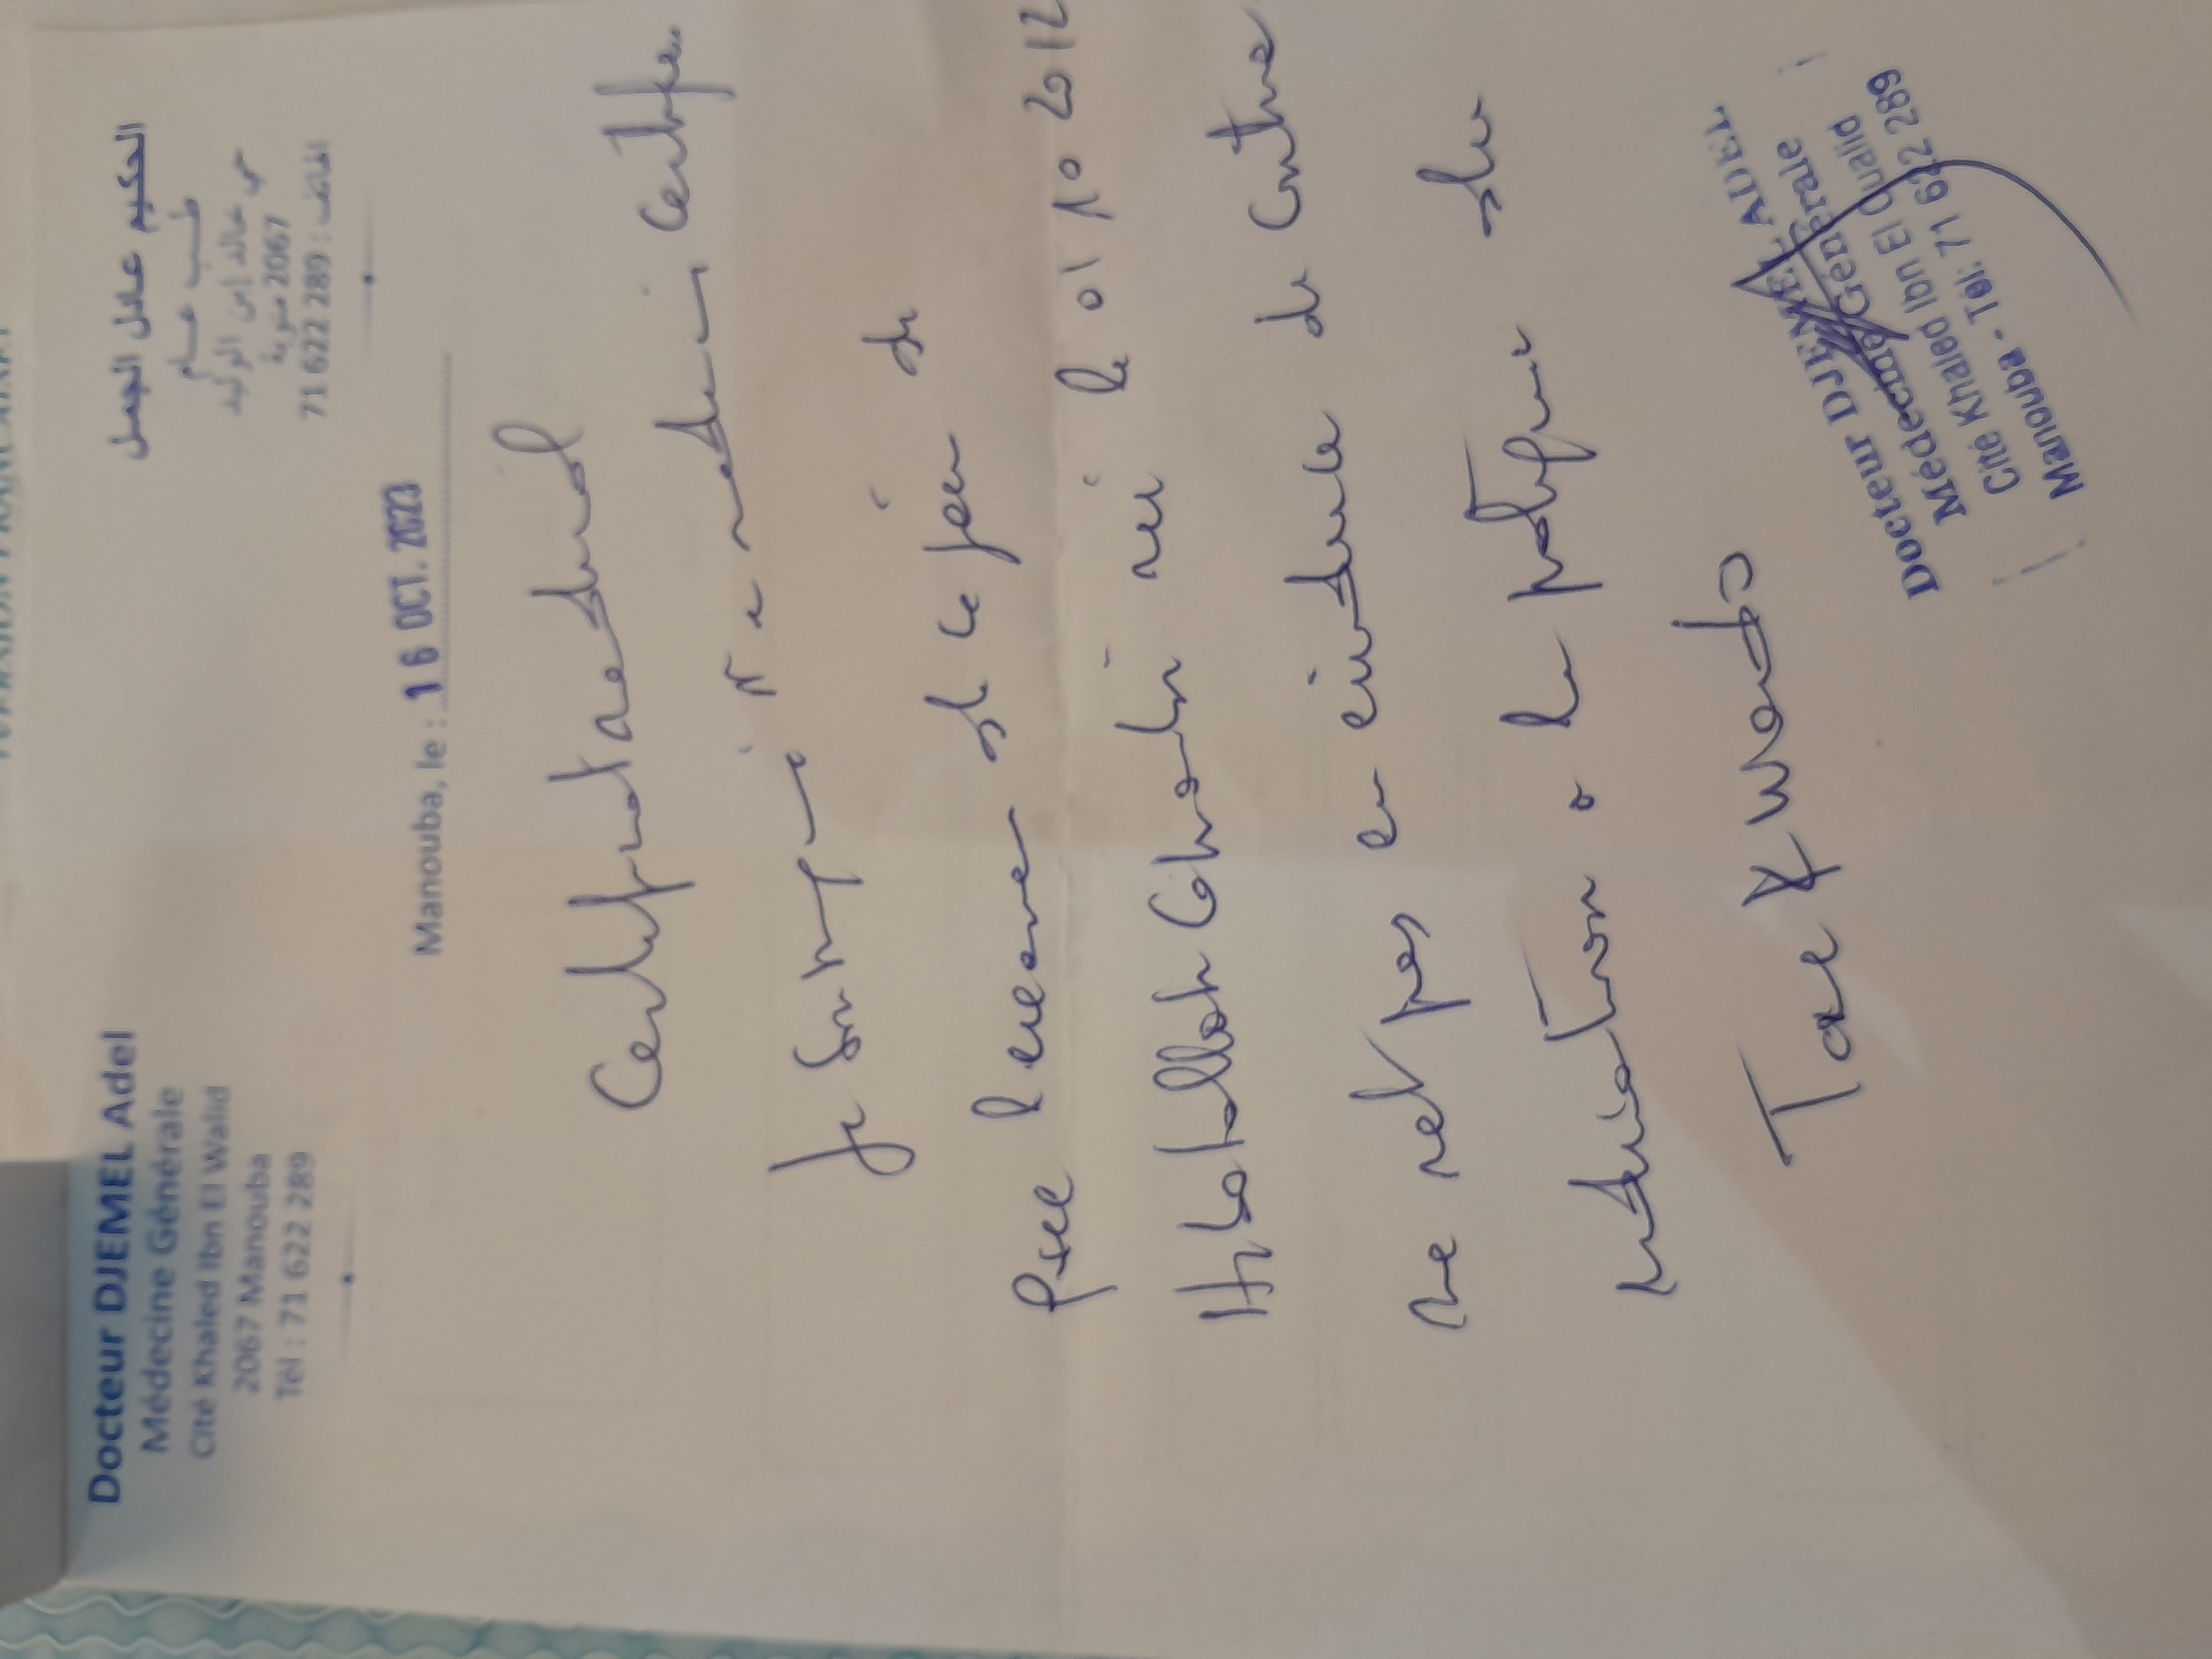 Docteur DJEMEL Adel
Médecine Générale
Cité Khaled Ibn El Walid
2067 Manouba
Tél : 71 622 289
الحكيم عادل الجمل
طب عام
حي خالد إبن الوليد
2067 منوبة
الهاتف : 289 622 71
Manouba, le : 16 OCT. 2023
Certificat medical
Je soussigné medecin certifie
que l'examen de ce jour de
né le 01 10 2012
ne net pas en evidence de contre
indication a la pratique du
Taekwondo
Docteur DJEMEL ADEL
Médecine Générale
Cité Khaled Ibn El Oualid
Manouba - Tel: 71 622 289